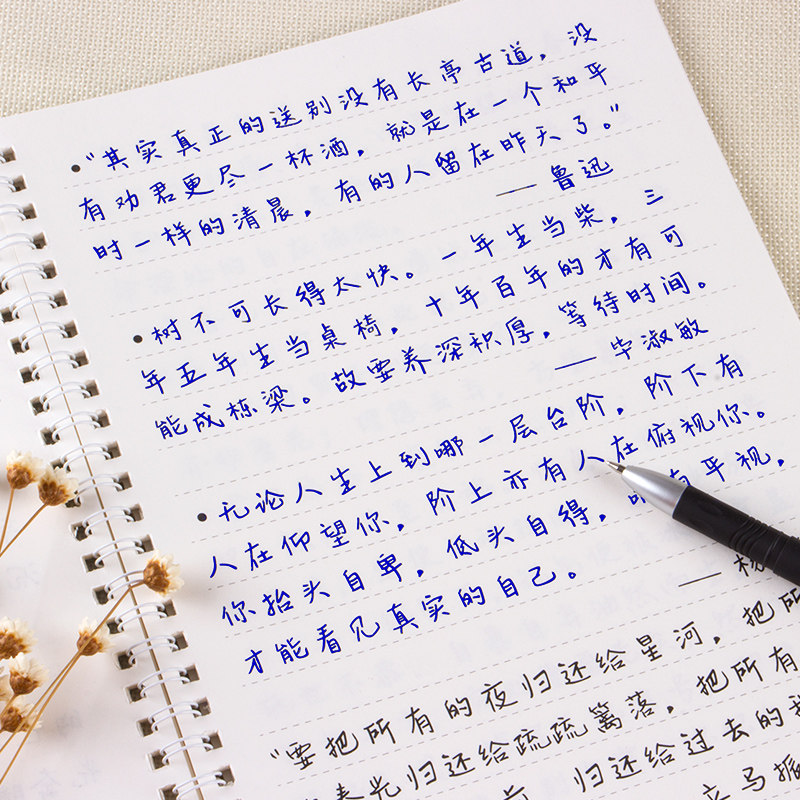 “其实真正的送别没有长亭古道，没
有劝君更尽一杯酒，就是在一个和平
时一样的清晨，有的人留在昨天了。”
——鲁迅
树不可长得太快。一年生当柴，三
年五年生当桌椅，十年百年的才有可
能成栋梁。故要养深积厚，等待时间。
——毕淑敏
无论人生上到哪一层台阶，阶下有
人在仰望你，阶上亦有人在俯视你。
你抬头自卑，低头自得，唯有平视，
才能看见真实的自己。
——杨
“要把所有的夜归还给星河，把所
春光归还给疏疏篱落，把所有
归还给过去的
立马振